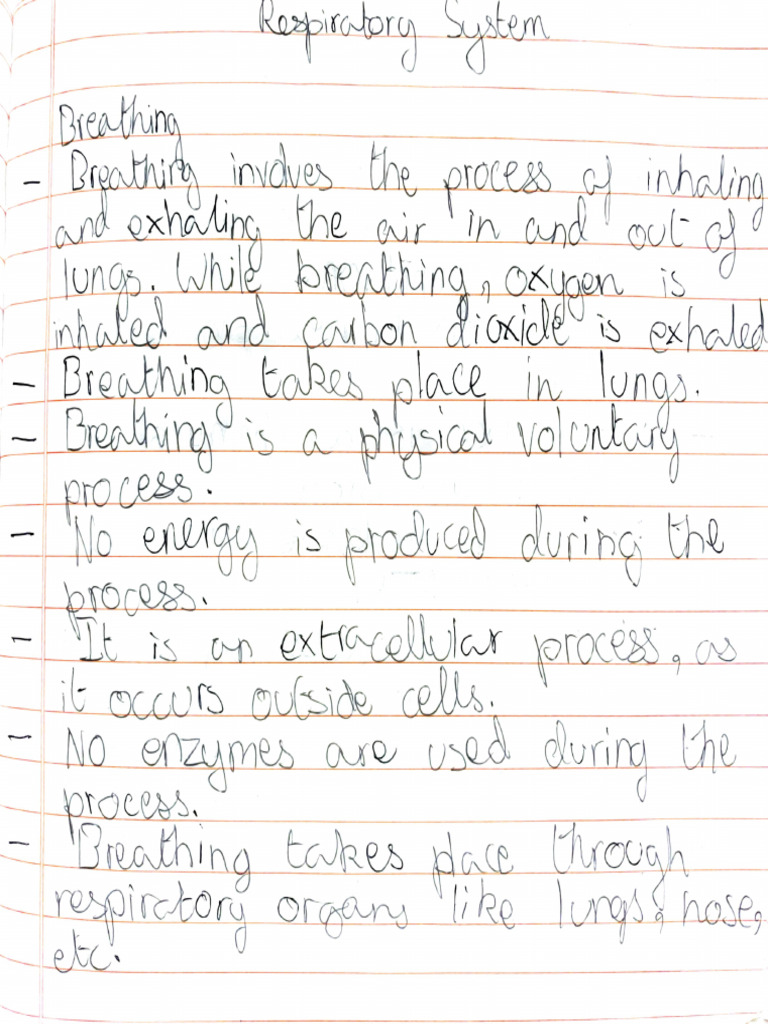 Respiratory System
Breathing
- Breathing involves the process of inhaling
and exhaling the air in and out of
lungs. While breathing, oxygen is
inhaled and carbon dioxide is exhaled
- Breathing takes place in lungs.
- Breathing is a physical voluntary
process.
- No energy is produced during the
process.
- It is an extracellular process, as
it occurs outside cells.
- No enzymes are used during the
process.
- Breathing takes place through
respiratory organs like lungs, nose,
etc.